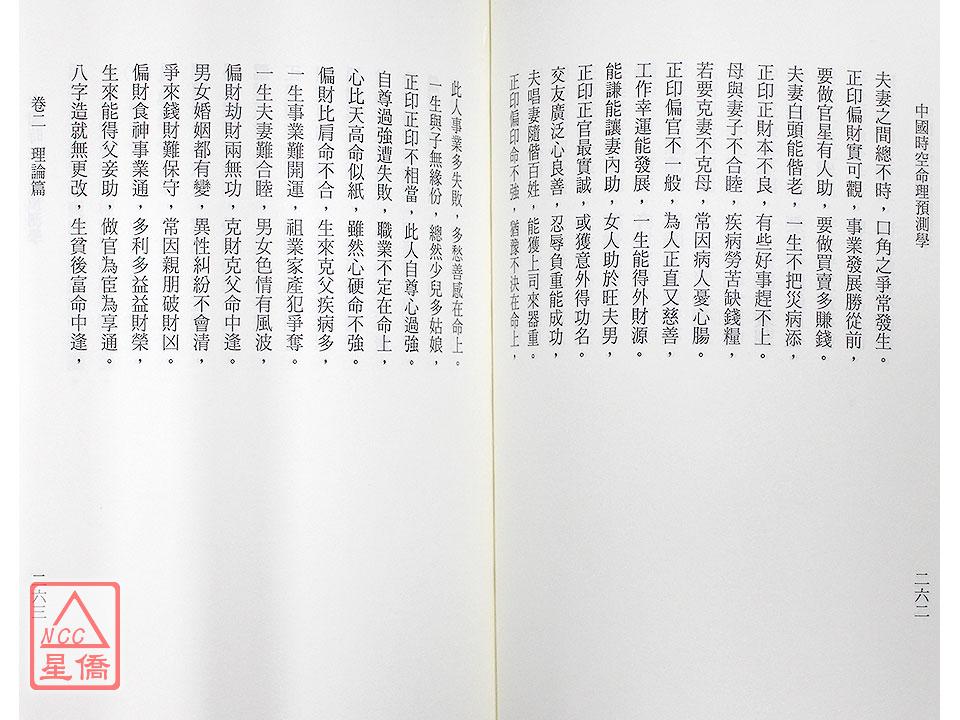 中國時空命理預測學
夫妻之間總不時，口角之爭常發生。
正印偏財實可觀，事業發展勝從前，
要做官星有人助，要做買賣多賺錢。
夫妻白頭能偕老，一生不把災病添，
正印正財本不良，有些好事趕不上。
母與妻子不合睦，疾病勞苦缺錢糧，
若要克妻不克母，常因病人憂心腸。
正印偏官不一般，為人正直又慈善，
工作幸運能發展，一生能得外財源。
能謙能讓妻內助，女人助於旺夫男，
正印正官最實誠，或獲意外得功名。
交友廣泛心良善，忍辱負重能成功，
夫唱妻隨偕百姓，能獲上司來器重。
正印偏印命不強，猶豫不決在命上，
二六二
此人事業多失敗，多愁善感在命上。
一生與子無緣份，總然少兒多姑娘，
正印正印不相當，此人自尊心過強。
自尊過強遭失敗，職業不定在命上，
心比天高命似紙，雖然心硬命不強。
偏財比肩命不合，生來克父疾病多，
一生事業難開運，祖業家產犯爭奪。
一生夫妻難合睦，男女色情有風波，
偏財劫財兩無功，克財克父命中逢。
男女婚姻都有變，異性糾紛不會清，
爭來錢財難保守，常因親朋破財凶。
偏財食神事業通，多利多益益財榮，
生來能得父妾助，做官為宦為享通。
八字造就無更改，生貧後富命中逢，
卷二　理論篇
二六三
NCC
星僑